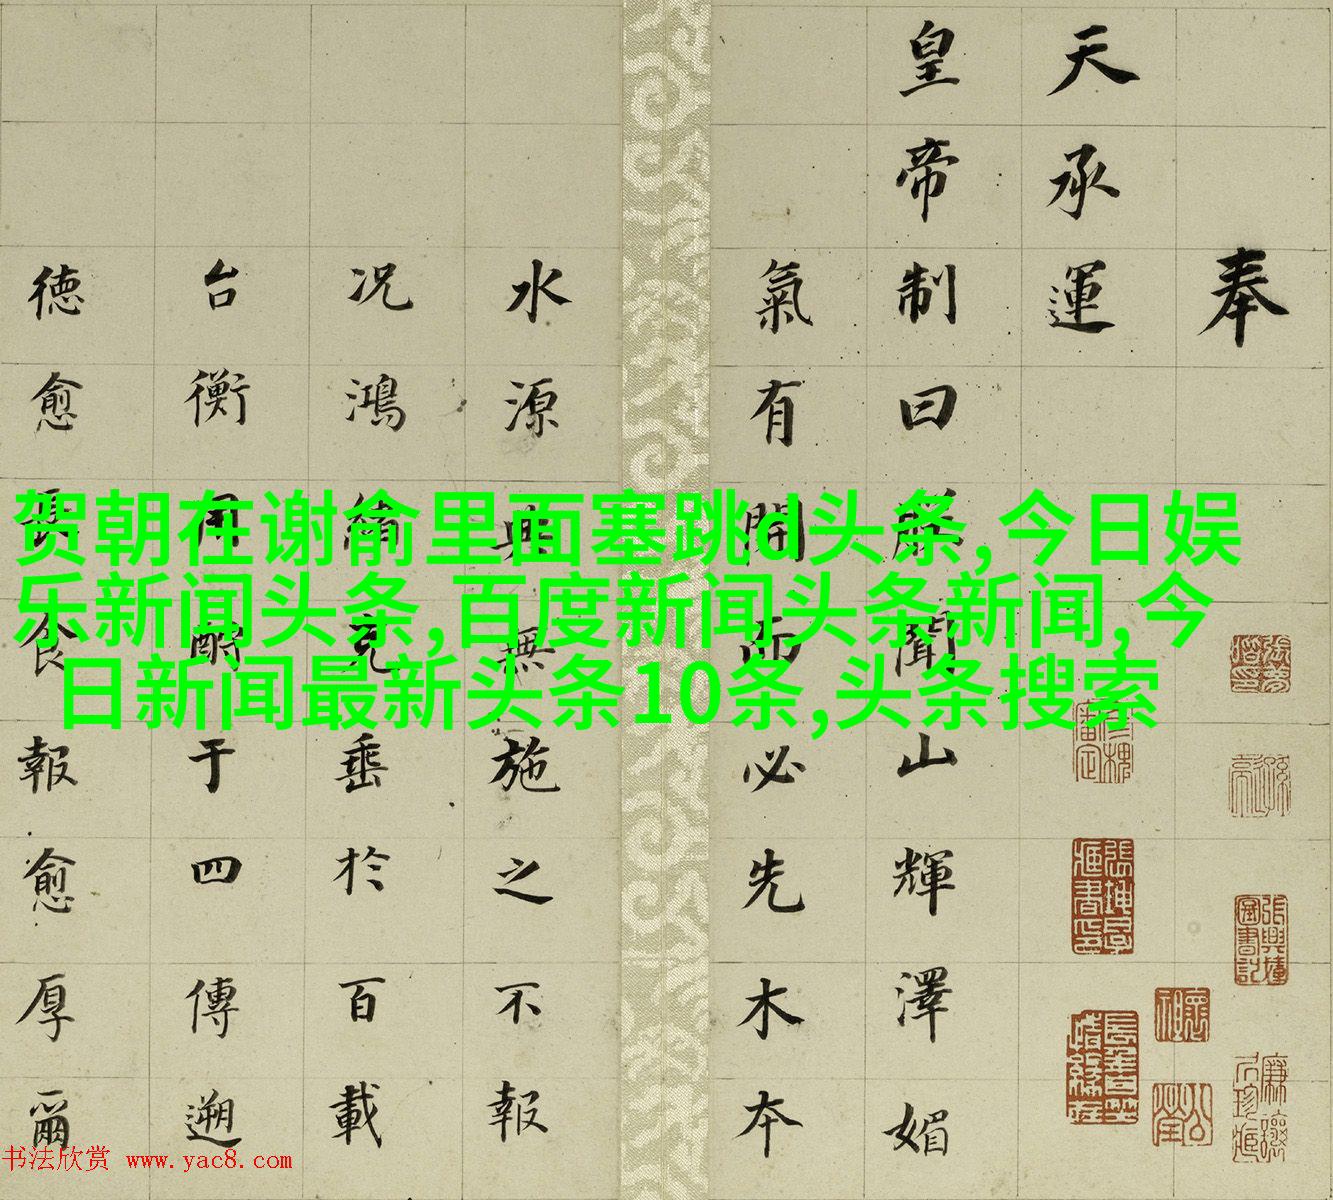 奉
天承運
皇帝制曰朕聞山輝澤媚
氣有開而必先木本
水源典無施之不報
况鴻緒克垂於百載
台衡用酬于四傳遡
德愈長食報愈厚爾
贺朝在谢俞里面塞跳d头条,今日娱
乐新闻头条,百度新闻头条新闻,今
日新闻最新头条10条,头条搜索
书法欣赏 www.yac8.com